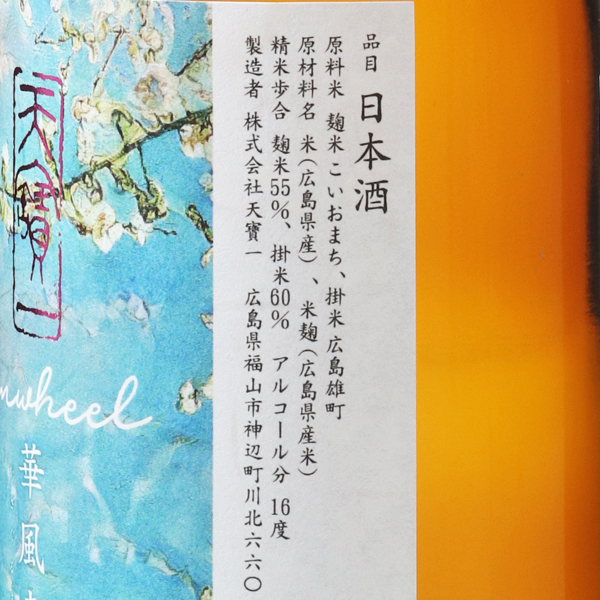 品目 日本酒
原料米 麹米 こいおまち、掛米 広島雄町
原材料名 米(広島県産)、米麹(広島県産米)
精米歩合 麹米55%、掛米60% アルコール分 16度
製造者 株式会社天寳一 広島県福山市神辺町川北六六〇
天寳一
wheel
華風